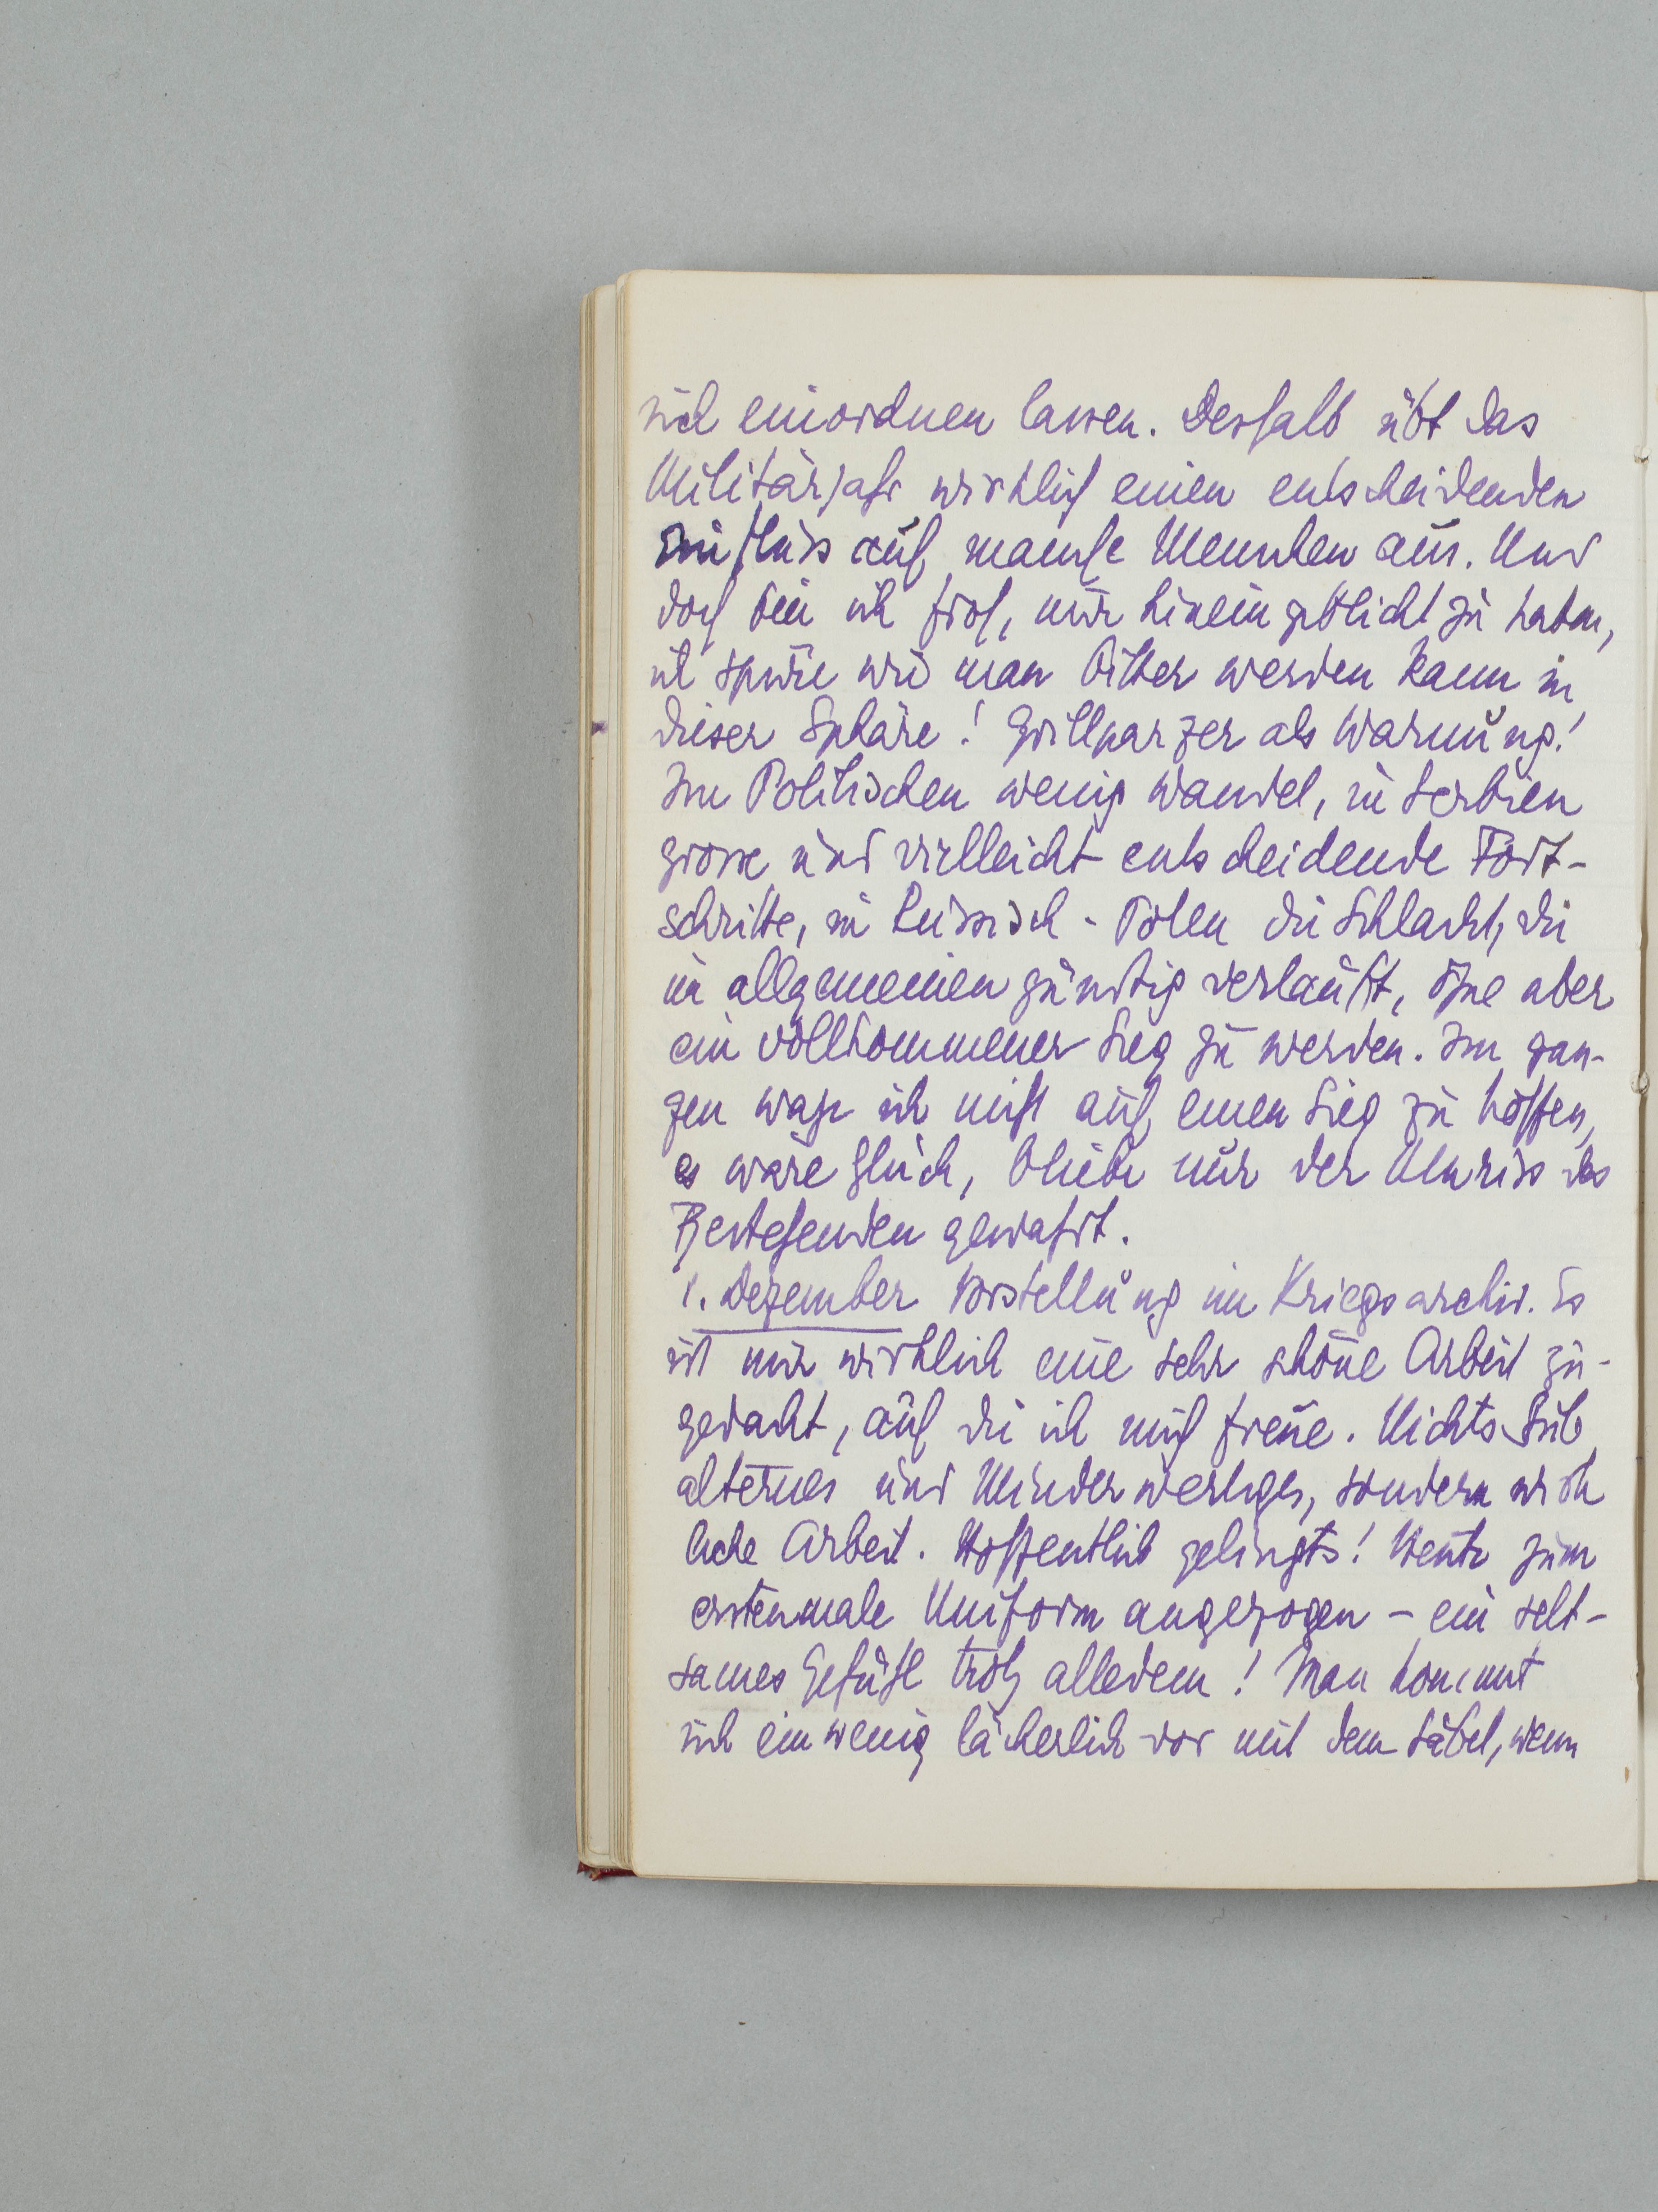 sich einordnen lassen. Deshalb übt das
Militärjahr wirklich einen entscheidenden
Einfluss auf manche Menschen aus. Und
doch bin ich froh, nur hineingeblickt zu haben,
ich spüre wie man bitter werden kann in
dieser Sphäre! Grillparzer als Warnung!
Im Politischen wenig Wandel, in Serbien
grosse und vielleicht entscheidende Fort-
schritte, in Russisch-Polen die Schlacht, die
im allgemeinen günstig verläuft, ohne aber
ein vollkommener Sieg zu werden. Im gan-
zen wage ich nicht auf einen Sieg zu hoffen,
es wäre Glück, bliebe nur der Umriss des
Bestehenden gewahrt.
1. Dezember Vorstellung im Kriegsarchiv. Es
ist mir wirklich eine sehr schöne Arbeit zu-
gedacht, auf die ich mich freue. Nichts Sub
alternes und Minderwertiges, sondern wirk
liche Arbeit. Hoffentlich gelingts! Heute zum
erstenmale Uniform angezogen – ein selt-
sames Gefühl trotz alledem! Man kommt
sich ein wenig lächerlich vor mit dem Säbel, wenn